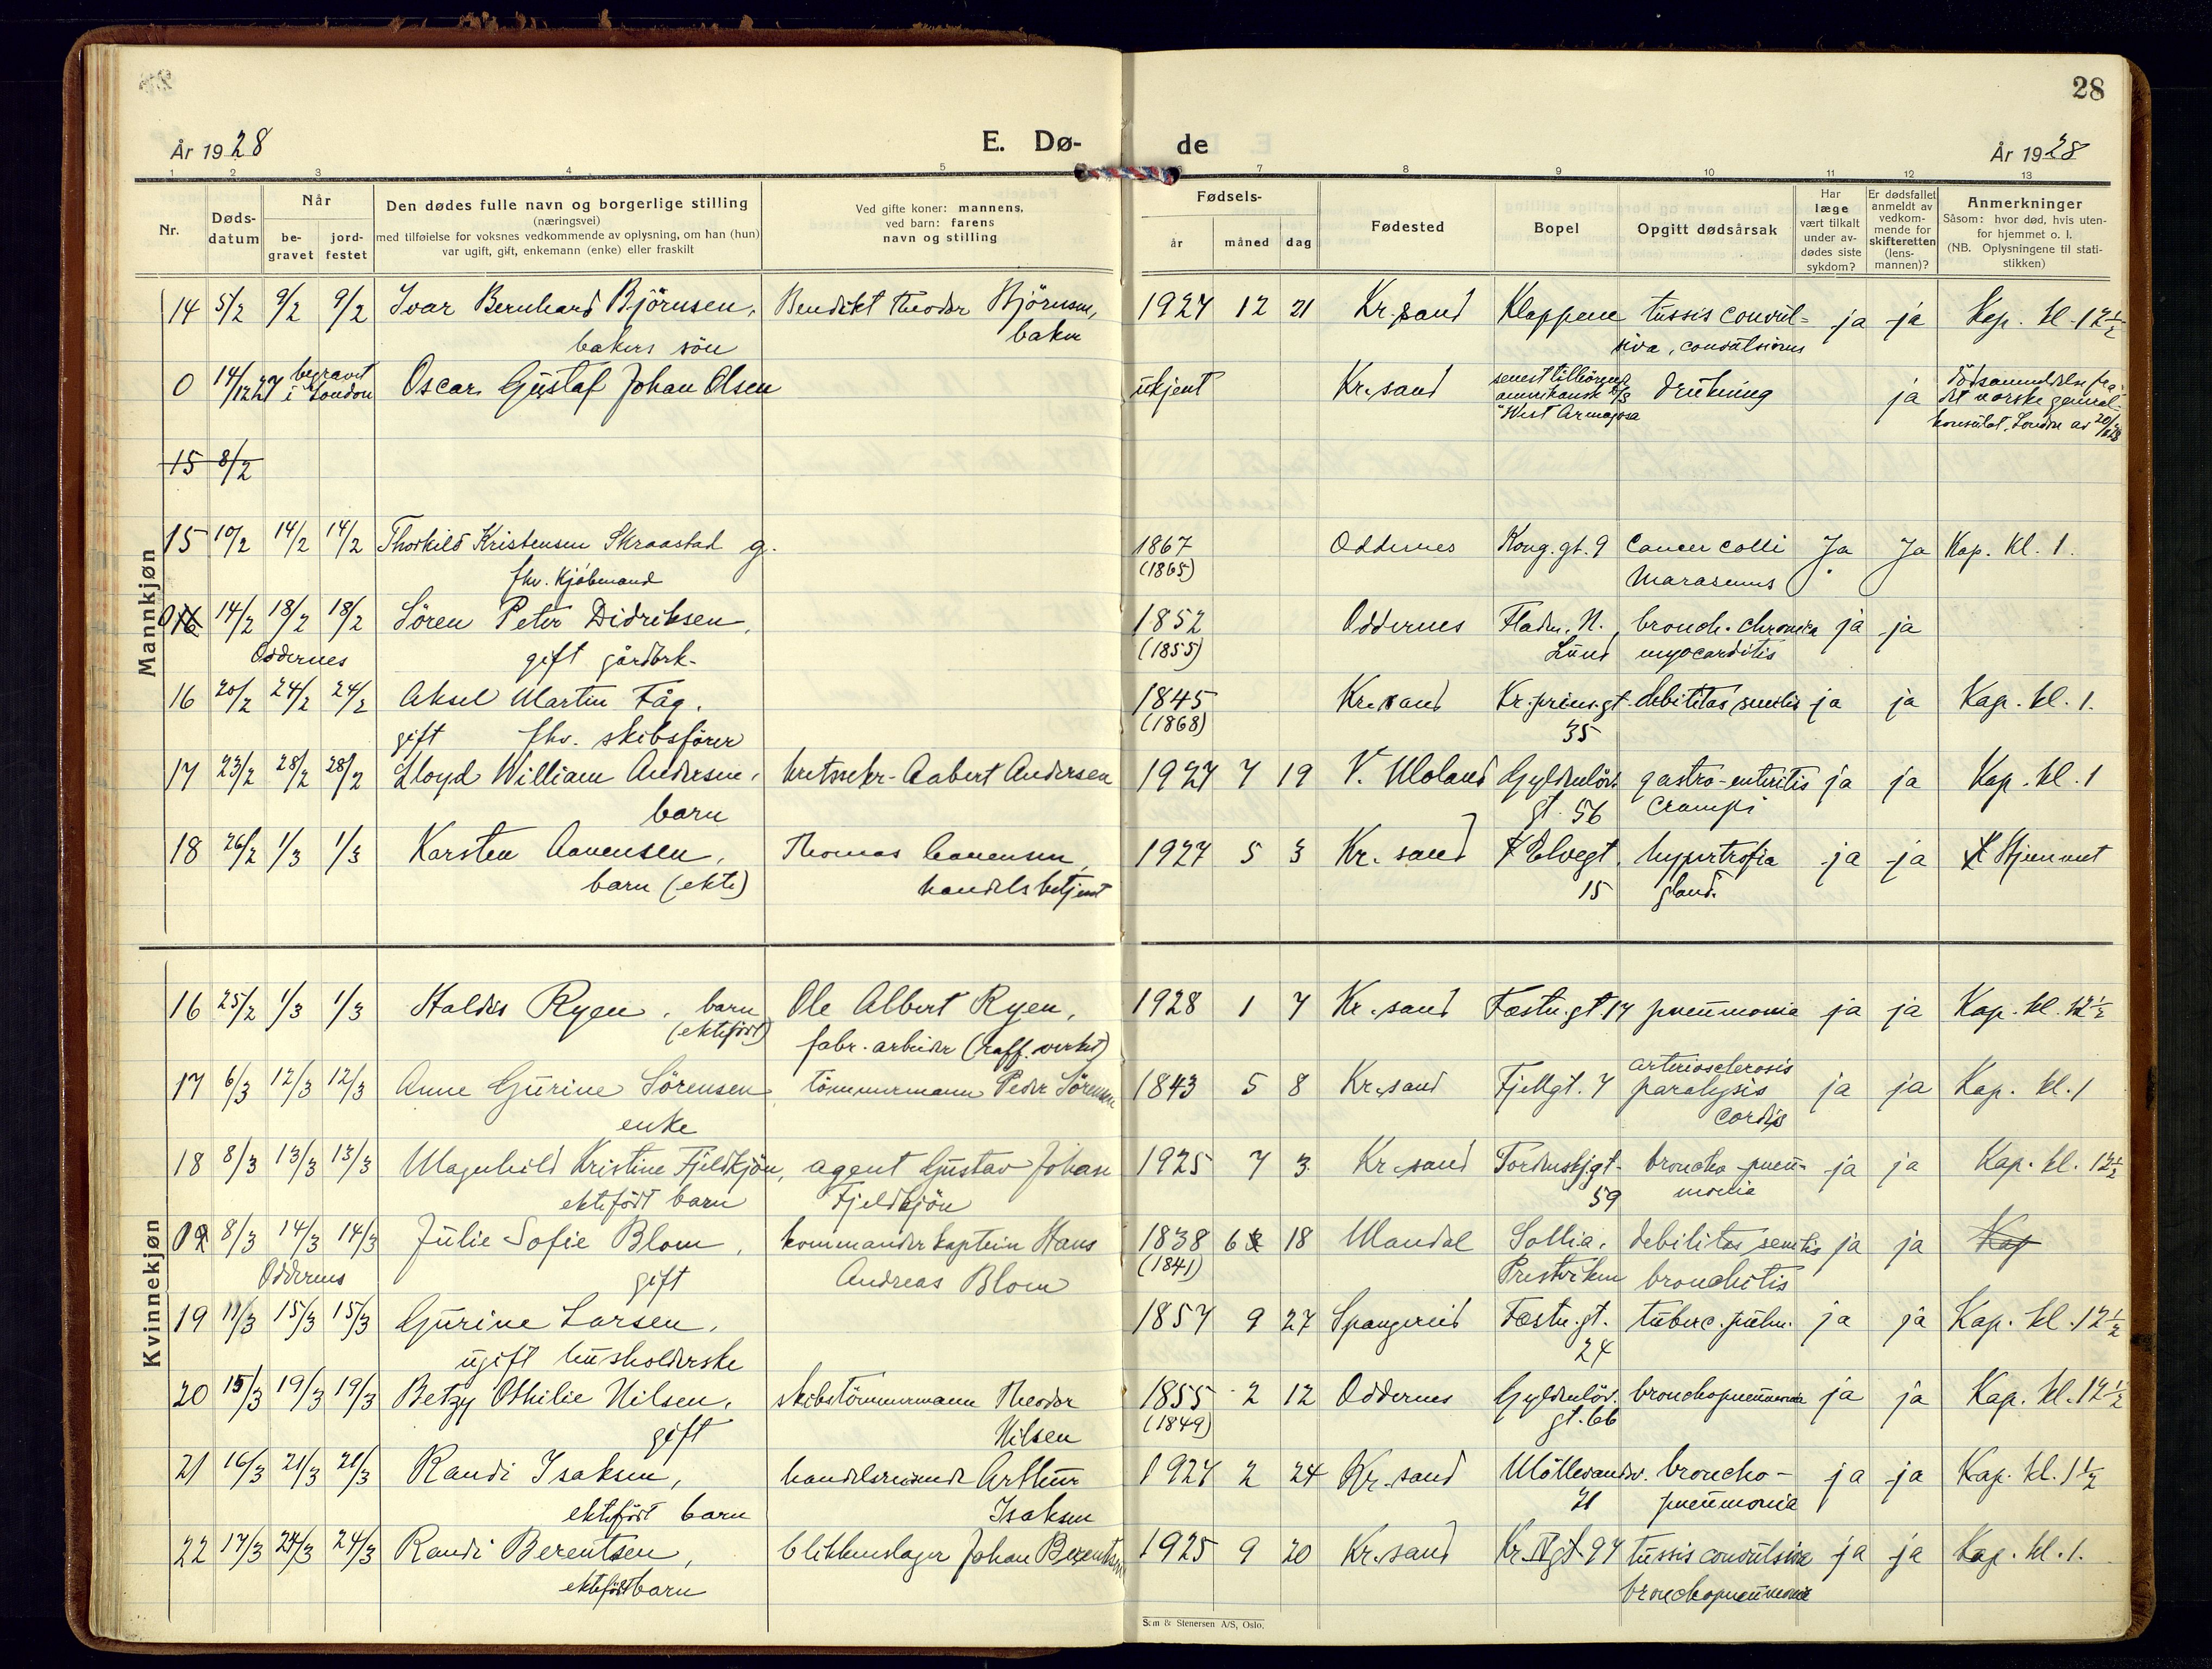 28
År 1928
E. Dø-
de
År 1928
1 2 3 4 5 7 8 9 10 11 12 13
Nr.
Døds-
datum
Når
be-
gravet
jord-
festet
Den dødes fulle navn og borgerlige stilling
(næringsvei)
med tilføielse for voksnes vedkommende av oplysning, om han (hun)
var ugift, gift, enkemann (enke) eller fraskilt
Ved gifte koner: mannens,
ved barn: farens
navn og stilling
Fødsels-
år måned dag
Fødested
Bopel
Opgitt dødsårsak
Har
læge
vært tilkalt
under av-
dødes siste
sykdom?
Er dødsfallet
anmeldt av
vedkom-
mende for
skifteretten
(lens-
mannen)?
Anmerkninger
Såsom: hvor død, hvis uten-
for hjemmet o. l.
(NB. Oplysningene til stati-
stikken)
Mannkjøn
14 5/2 9/2 9/2 Ivar Bernhard Björnsen, Bendikt Theodor Björnsen, 1927 12 21 Kr.sand Kleppene tussis convul- ja ja Kap. kl. 12 1/2
bakers sön baker siva, convulsions
0 14/12 27 begravet i London Oscar Gustaf Johan Olsen ukjent Kr.sand senest tilhörende amerikansk s/s "West Armagosa drukning ja dödsanmeldelse fra det norske general-
konsulat, London av
15 8/2
15 10/2 14/2 14/2 Thorkild Kristensen Skraastad g. 1867 Oddernes Kong. gt. 9 Cancer colli Ja Ja Kap. Kl. 1.
fhv. Kjöbmand (1865) Marasmus
0 16 14/2 18/2 18/2 Sören Peter Didriksen, 1852 Oddernes Fladm. N. bronch. chronica ja ja
Oddernes gift gårdbrk. (1855) Lund myocarditis
16 20/2 24/2 24/2 Aksel Martin Fåg. 1845 Kr.sand Kr.prins.gt. debilitas senilis ja ja Kap. kl. 1.
gift fhv. skibsförer (1868) 35
17 23/2 28/2 28/2 Lloyd William Andersen, Aabert Andersen 1927 7 19 V. Moland Gyldenlöv. gastro-enteritis ja ja Kap. kl. 1
barn gt. 56 crampi
18 26/2 1/3 1/3 Karsten Aanensen, Thomas Aanensen, 1927 5 3 Kr. sand Elvegt. hypertrofia ja ja Hjemmet
barn (ekte) handelsbetjent 15 gland.
Kvinnekjøn
16 25/2 1/3 1/3 Haldis Ryen, barn Ole Albert Ryen, 1928 1 7 Kr.sand Festn.gt 17 pneumonia ja ja Kap. kl. 12 1/2
(ektefödt) fabr. arbeider (raff. verket)
17 6/3 12/3 12/3 Anne Gurine Sörensen tömmermann Peder Sörensen 1843 5 8 Kr.sand Fjellgt. 7 arteriosclerosis paralysis ja ja Kap. kl. 1
enke cordis
18 8/3 13/3 13/3 Magnhild Kristine Fjeldkjön, agent Gustav Johan 1925 7 3 Kr.sand Tordenskj.gt. broncho-pneu- ja ja Kap. kl. 12 1/2
ektefödt barn Fjeldkjön 59 monia
0 8/3 14/3 14/3 Julie Sofie Blom, kommanderkaptein Hans 1838 6 18 Mandal Sollia, debilitas senilis ja ja Kap
Oddernes gift Andreas Blom (1841) Prestviken bronchitis
19 11/3 15/3 15/3 Gurine Larsen, 1857 9 27 Spangereid Festn.gt. tuberc. pulm. ja ja Kap. kl. 12 1/2
ugift husholderske 24
20 15/3 19/3 19/3 Betzy Othilie Nilsen, skibstömmermann Theodor 1855 2 12 Oddernes Gyldenlöv. bronchopneumonia ja ja Kap. kl. 12 1/2
gift Nilsen (1849) gt. 66
21 16/3 21/3 21/3 Randi Isaksen, handelsreisende Arthur 1927 2 24 Kr.sand Möllevandsv. broncho- ja ja Kap. kl. 1 1/2
ektefödt barn Isaksen 21 pneumonia
22 17/3 24/3 24/3 Randi Berentsen, blikkenslager Johan Berentsen 1925 9 20 Kr.sand Kr. IV gt 97 tussis convulsiva ja ja Kap. kl. 1.
ektefödt barn bronchopneumonia
Sem & Stenersen A/S, Oslo.